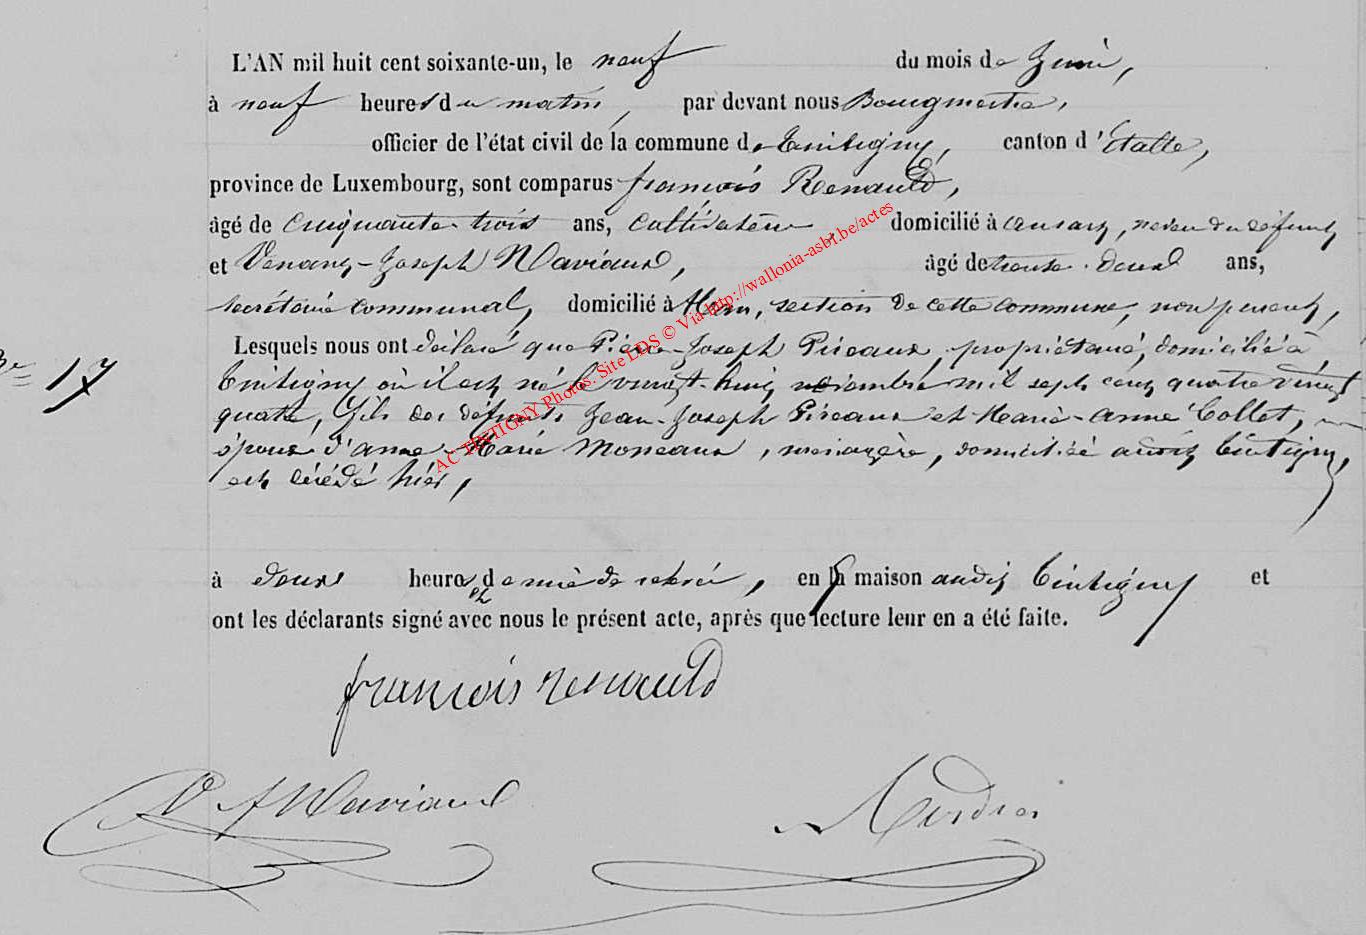 L'AN mil huit cent soixante-un, le neuf du mois de Juin,
à neuf heures du matin, par devant nous Bourgmestre,
officier de l'état civil de la commune de Tintigny, canton d'Etalle,
province de Luxembourg, sont comparus françois Renauld,
âgé de cinquante-trois ans, cultivateur domicilié à ansart, neveu du défunt
et Venant-Joseph Naviaux, âgé de trente-deux ans,
secrétaire communal, domicilié à Han, section de cette commune, non parent,
Lesquels nous ont déclaré que Pierre-Joseph Pireaux, propriétaire, domicilié à
Tintigny où il est né le vingt-huit mil sept cent quatre vingt
quatre, fils des défunts Jean-Joseph Pireaux et Marie-anne Collet,
époux d'anne-Marie Monceaux, ménagère, domiciliée audit Tintigny,
est décédé hier,
17
à deux heures et demie de relevée, en sa maison audit Tintigny et
ont les déclarants signé avec nous le présent acte, après que lecture leur en a été faite.
françois renauld
V J Naviaux
ACTINTIGNY Photos: Site LDS © Via http://wallonia-asbl.be/actes